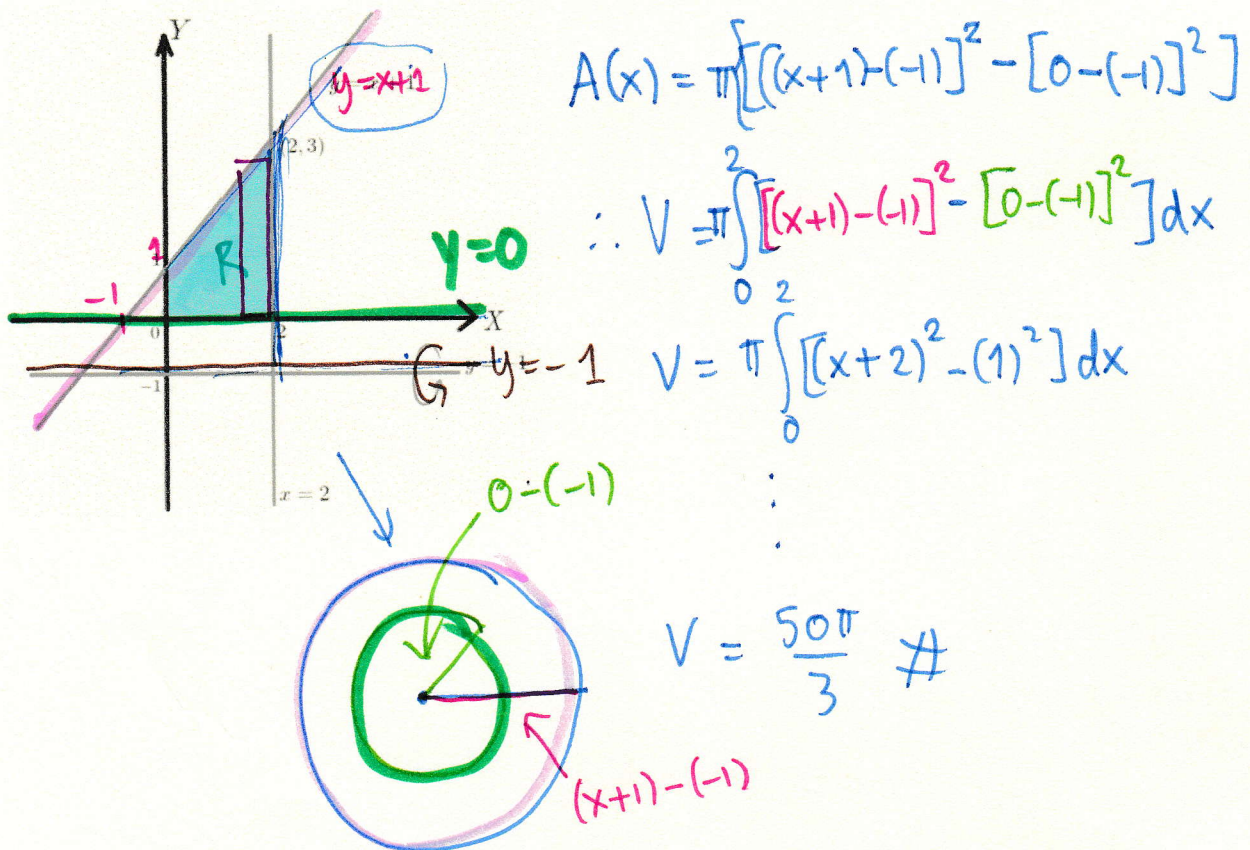 Y
y=x+1
(2,3)
1
R
y=0
-1
0
2
X
-1
y=-1
x = 2
A(x) = π[[(x+1)-(-1)]² - [0-(-1)]²]
∴ V = π∫₀² [[(x+1)-(-1)]² - [0-(-1)]²]dx
V = π∫₀² [(x+2)² - (1)²]dx
⋮
V = 50π/3 #
0-(-1)
(x+1)-(-1)